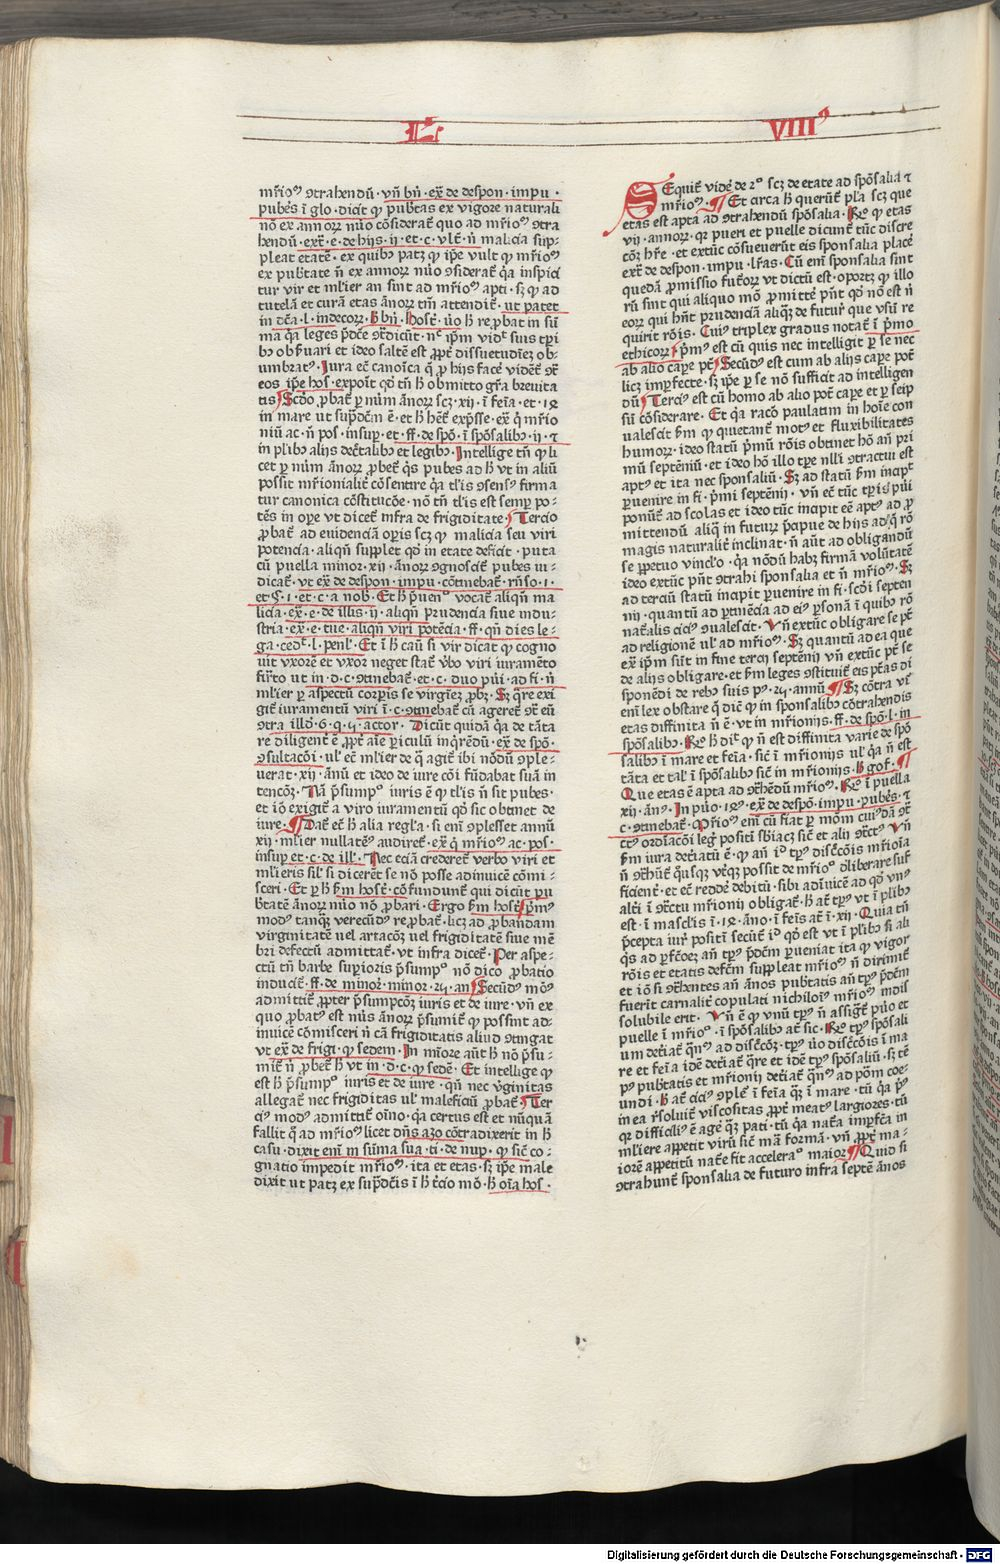 L. VIIIꝰ
mr̃ioꝫ ꝯtrahendũ · vñ bñ · ex̃ de despon · impu ·
puberes ĩ glo · dicit ꝙ pub̾tas ex vigore naturali
nõ ex annorꝝ nũo cõsiderat̃ quo ad mr̃ioꝫ ꝯtra
hendũ · extr̃ · e · de hijs · ij · et · c · vlt̃ · ñ malicia sup-
pleat etatẽ · ex quibꝰ patꝫ ꝙ ip̃e vult ꝙ mr̃ioꝫ
ex pub̾tate ñ ex annorꝝ nũo ꝯsiderat̃ q̃a inspici
tur vir et ml̃ier an sint ad mr̃ioꝫ apti · sꝫ ꝙ ad
tutelã et curã etas ãnorꝝ tm̃ attendit̃ · ut patet
in dc̃a · l · indecorꝝ · h̾ bñ · Host̃ · ũo h̾ reprobat in sũ
ma q̃a leges p̃dc̃e ꝯtdicũt · nc̃ ip̃m vidc̃ suis tp̃ri
bꝰ obs̃uari et ideo saltẽ est ꝓpt̃ dissuetudiẽꝫ ob-
umbratꝰ · Iura ec̃ canoĩca q̃ ꝓ hijs facẽ vident̃ ꝯt̃
eos ip̃e hos · expoĩt qd̾ tñ h̾ obmitto gr̃a breuita
tis · Scd̾o ꝓbat̃ ꝑ num̃ ãnorꝝ scꝫ · xij · ĩ feĩa · et · 14
in mare ut sup̃dc̃m ẽ · et h̾ het̃ exp̃sse · ex̃ q̃ mr̃io
niũ ac · ñ pos · insuꝑ · et · ff · de spõ · ĩ spõsalibꝰ · ij · ⁊
in pl̃ibꝰ alijs dec̃talibꝰ et legibꝰ · Intellige tñ ꝙ li
cet ꝑ num̃ ãnorꝝ ꝓbet̃ q̃s pubes ad h̾ vt in aliũ
possit mr̃ionialit̃ cõsentire q̃a tl̃is ꝯsensꝰ firma
tur canonica cõstitucõe · nõ tñ tl̃is est semꝑ po-
tẽs in oꝑe vt dicet̃ infra de frigiditate · Tercio
ꝓbat̃ ad euidenciã oꝑis scꝫ ꝙ malicia seu viri
potencia · aliqñ supplet qd̾ in etate deficit · puta
cũ puella minor · xij · ãnorꝝ ꝯgnoscit̃ pubes iu-
dicat̃ · vt ex̃ de despon · impu · cõtinebat̃ · rñso · 1 ·
et · § · 1 · et · c · a nob̾ · Et h̾ p̃uenꝰ vocat̃ aliqñ ma
licia · ex̃ · e · de illis · ij · aliqñ prudencia siue indu-
stria · ex̃ · e · tue · aliqñ viri potẽcia · ff · qñ dies le-
ga · cedc̃ · l · penl̃ · Et ĩ h̾ cãu si vir dicit ꝙ cogno
uit vxorẽ et vxoꝝ neget stat̃ v̾bo viri iuramẽto
fir̃to ut in · d · c · ꝯtinebat̃ · et · c · duo pũi · ad fi · ñ
ml̃ier ꝑ aspectũ corp̃is se virgiẽꝫ ꝓbꝫ · Sꝫ q̃re exi
git̃ iuramentũ viri ĩ · c · ꝯtinebat̃ cũ ageret̃ ꝯt̃ eũ
ꝯtra illd̾ · 6 · q · 4 · actor · Dicũt quidã q̃a de tãta
re diligent̃ ẽ ꝓpt̃ aĩe ꝑiculũ inq̃rẽdũ · ex̃ de spõ ·
ꝯsultacõi · ul̾ ec̃ ml̃ier de q̃ agit̃ ibi nõdũ ꝯple-
uerat · xij · ãnũ et ideo de iure cõi fũdabat suã in
tencõꝫ · Nã p̃sumpꝰ iuris ẽ ꝙ tl̃is ñ sit pubes ·
et iõ exigit̃ a viro iuramentũ qd̾ sic obtinet de
iure · Dat̃ ec̃ h̾ alia regl̾a · si enĩ ꝯplesset annũ
xij · ml̃ier nullatẽꝰ audiret̃ · ex̃ q̃ mr̃ioꝫ ac · pos ·
insuꝑ et · c · de ill̾ · Nec eciã crederet̃ verbo viri et
ml̃ieris sil̾ si dicerẽt se nõ posse adinuicẽ cõmi-
sceri · Et ꝑ h̾ s̾m host̃ · cõfundunt̃ qui dicũt pu
b̾tatẽ ãnorꝝ nũo nõ ꝓbari · Ergo s̾m host̃ p̃mꝰ
modꝰ tanq̃ꝫ verecũdꝰ reꝓbat̃ · licꝫ ad ꝓbandam
virginitatẽ vel artacõꝫ uel frigiditatẽ siue mẽ
bri defectũ admittat̃ · vt infra dicet̃ · Per aspe-
ctũ tñ barbe suꝑioris p̃sumpꝰ nõ dico ꝓbatio
inducit̃ · ff · de minor · minor · 24 · an · Secũdꝰ mõꝰ
admittit̃ ꝓpter p̃sumpcõꝫ iuris et de iure · vñ ex
quo ꝓbatꝰ est nũs ãnorꝝ p̃sumit̃ ꝙ possint ad-
inuicẽ cõmisceri ñ cã frigiditatis aliud ꝯtingat
vt ex̃ de frigi · ꝙ sedem · In mĩore aũt h̾ nõ p̃su-
mit̃ ñ ꝓbet̃ h̾ vt in · d · c · ꝙ sedẽ · Et intellige ꝙ
est h̾ p̃sumpꝰ iuris et de iure · qñ nec v̾ginitas
allegat̃ nec frigiditas ul̾ maleficiũ ꝓbat̃ · Ter
ciꝰ modꝰ admittit̃ oĩno · q̃a certus est et nũquã
fallit q̃ ad mr̃ioꝫ licet dñs azo cõtradixerit in h̾
casu · dixit enĩ in sũma sua · ti · de nup · ꝙ sic̃ co-
gnatio impedit mr̃ioꝫ · ita et etas · sꝫ ip̃e male
dixit ut patꝫ ex sup̃dc̃is ĩ h̾ t̾cio mõ · h̾ oĩa hos ·
Sequit̃ videre de 2º scꝫ de etate ad spõsalia ⁊
mr̃ioꝫ · Et circa h̾ querũt̃ pl̃a scꝫ que
etas est apta ad ꝯtrahendũ spõsalia · R̃o ꝙ etas
vij · annorꝝ · qꝛ pueri et puelle dicunt̃ tũc discre
cõꝫ hr̃e · et extũc cõsueuerũt eis sponsalia placẽ
extr̃ de despon · impu · lr̃as · Cũ enĩ sponsalia sint
quedã ꝓmissio futurorꝝ vt dictũ est · oportꝫ ꝙ illo
rũ sint qui aliquo mõ ꝓmittẽ p̃nt qd̾ nõ est ñ
eorꝝ qui hñt prudenciã aliq̃ꝫ de futurꝭ que vsũ re
quirit rõis · Cuiꝰ triplex gradus notat̃ ĩ p̃mo
ethicorꝝ p̃mꝰ est cũ quis nec intelligit ꝑ se nec
ab alio caꝑe pt̃ · Secũdꝰ est cum ab alijs caꝑe pot̃
licꝫ imꝑfecte · sꝫ ip̃e ꝑ se nõ sufficit ad intelligen
dũ · Terciꝰ est cũ homo ab alio pot̃ caꝑe et ꝑ seip̃
sũ cõsiderare · Et q̃a racõ paulatim in hoĩe con
ualescit s̾m ꝙ quietant̃ motꝰ et fluxibilitates
humorꝝ · ideo statũ p̃mũ rõis obtinet hõ añ pri
mũ septẽniũ · et ideo hõ illo tꝑe nl̃li ꝯtractui est
aptꝰ et ita nec sponsaliũ · Sꝫ ad statũ s̾m incipit
ꝑuenire in fi · p̃mi septẽnij · vñ ec̃ tũc tp̃ris pũi
ponũt̃ ad scolas et ideo tũc incipit eẽ aptꝰ ad ꝓ
mittendũ aliq̃ in futurꝝ p̃cipue de hijs ad q̃ rõ
magis naturalit̃ inclinat · ñ aũt ad obligandũ
se ꝑpetuo vinclo · q̃a nõdũ habꝫ firmã volũtatẽ
ideo extũc p̃nt ꝯtrahi sponsalia et ñ mr̃ioꝫ · Sꝫ
ad terciũ statũ incipit ꝑuenire in fi · scd̾i septen
nij · quantũ ad ꝑtinẽcia ad eiꝰ ꝑsonã ĩ quibꝰ rõ
nat̃alis ciciꝰ ꝯualescit · Vñ extũc obligare se pt̃
ad religionẽ ul̾ ad mr̃ioꝫ · Sꝫ quantũ ad ea que
ex̃ ip̃m sũt in fine tercij septẽnij vñ extũc pt̃ se
de alijs obligare · et s̾m leges ꝯstituit̃ eis pt̃as di
sponẽdi de rebꝰ suis pꝰ · 24 · annũ · Sꝫ cõtra vr̃
enĩ lex obstare q̃ dic̃ ꝙ in sponsalibꝰ cõtrahendis
etas diffinita ñ ẽ · vt in mr̃ionijs · ff · de spõ · l · in
spõsalibꝰ · R̃o h̾ dic̾ꝫ ꝙ ñ est diffinita varie de spõ
salibꝰ ĩ mare et feĩa · sic̃ ĩ mr̃ionijs ul̾ q̃a ñ est
tãta et tal̾ ĩ spõsalibꝰ sic̃ in mr̃ionijs · h̾ gof ·
Que etas ẽ apta ad ꝯt̾hẽdũ mr̃ioꝫ · R̃o ĩ puella
xij · ãnꝰ · In pũo · 14 · ex̃ de despõ · impu · pubes · ⁊
c · ꝯtinebat̃ · Mr̃ioꝫ enĩ cũ fiat ꝑ mõm cuiꝰdã ꝯt̾
ctꝰ ordiacõi legꝭ positĩ sb̾iacꝫ sic̃ et alij ꝯt̾ctꝰ · Vñ
s̾m iura det̾iatũ ẽ · ꝙ añ id tp̃ꝰ discrecõis mr̃ioĩa
ñ ꝯt̾hãt̃ q̃usqꝫ vt̾qꝫ possit de mr̃ioꝫ dliberare suf
ficient̃ · et ec̃ reddẽ debitũ · sibi adĩuicẽ ad qd̾ vnꝰ
alt̾i ĩ ꝯt̾ctu mr̃ionij obligat̃ · h̾ at̃ tp̃ꝰ vt ĩ pl̃ibꝰ
est · ĩ mascl̾is ĩ · 14 · ãno · ĩ feĩs at̃ ĩ · xij · Quia tñ
p̃cepta iurꝭ positĩ secũt̃ id qd̾ est vt ĩ pl̃ibꝰ si ali
q̃s ad ꝑfc̃õeꝫ añ tp̃ꝰ p̃dc̃m ꝑueniat ita ꝙ vigor
rõis et etatis defc̃m suppleat mr̃ioꝫ ñ dirimit̃
et iõ si ꝯt̾hentes añ ãnos pub̾tatis añ tp̃ꝰ p̃dc̃m
fuerĩt carnalit̃ copulati nichiloĩꝰ mr̃ioꝫ indis
solubile erit · Vñ ñ ẽ ꝙ vnũ tp̃ꝰ ñ assigt̃ pũo et
puelle ĩ mr̃ioꝫ · ĩ spõsalibꝰ at̃ sic · R̃o tp̃ꝰ spõsali
um det̾iat̃ q̃nꝰ ad discrecõꝫ · tp̃ꝰ ũo discrecõis ĩ ma
re et feĩa idẽ det̾iat̃ q̃re et idẽ tp̃ꝰ spõsaliũ · sꝫ tẽ
pꝰ pub̾tatis et mr̃ionij det̾iat̃ q̃nꝰ ad põm coe-
undi · h̾ at̃ ciciꝰ ꝯplet̃ ĩ feĩa q̃ꝫ ĩ mare · tũ q̃a pꝰ
in ea r̃soluit̃ viscositas ꝓpt̃ meatꝰ largiores · tũ
qꝛ difficiliꝰ ẽ agẽ q̃ꝫ pati · tũ q̃a nat̃a imꝑfc̃a in
ml̃iere appetit virũ sic̃ mã formã · vñ ꝓpt̃ ma-
iorẽ appetitũ nat̃e fit acceleraꝰ maior · Quid si
ꝯtrahunt̃ sponsalia de futuro infra septẽ ãnos
Digitalisierung gefördert durch die Deutsche Forschungsgemeinschaft - DFG